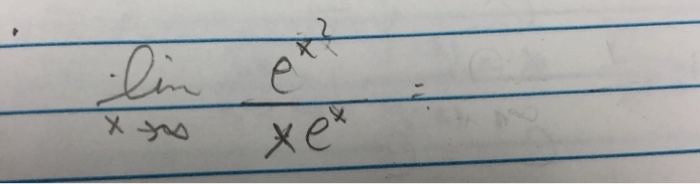 lim x→∞ e^{x^2} / x e^x =